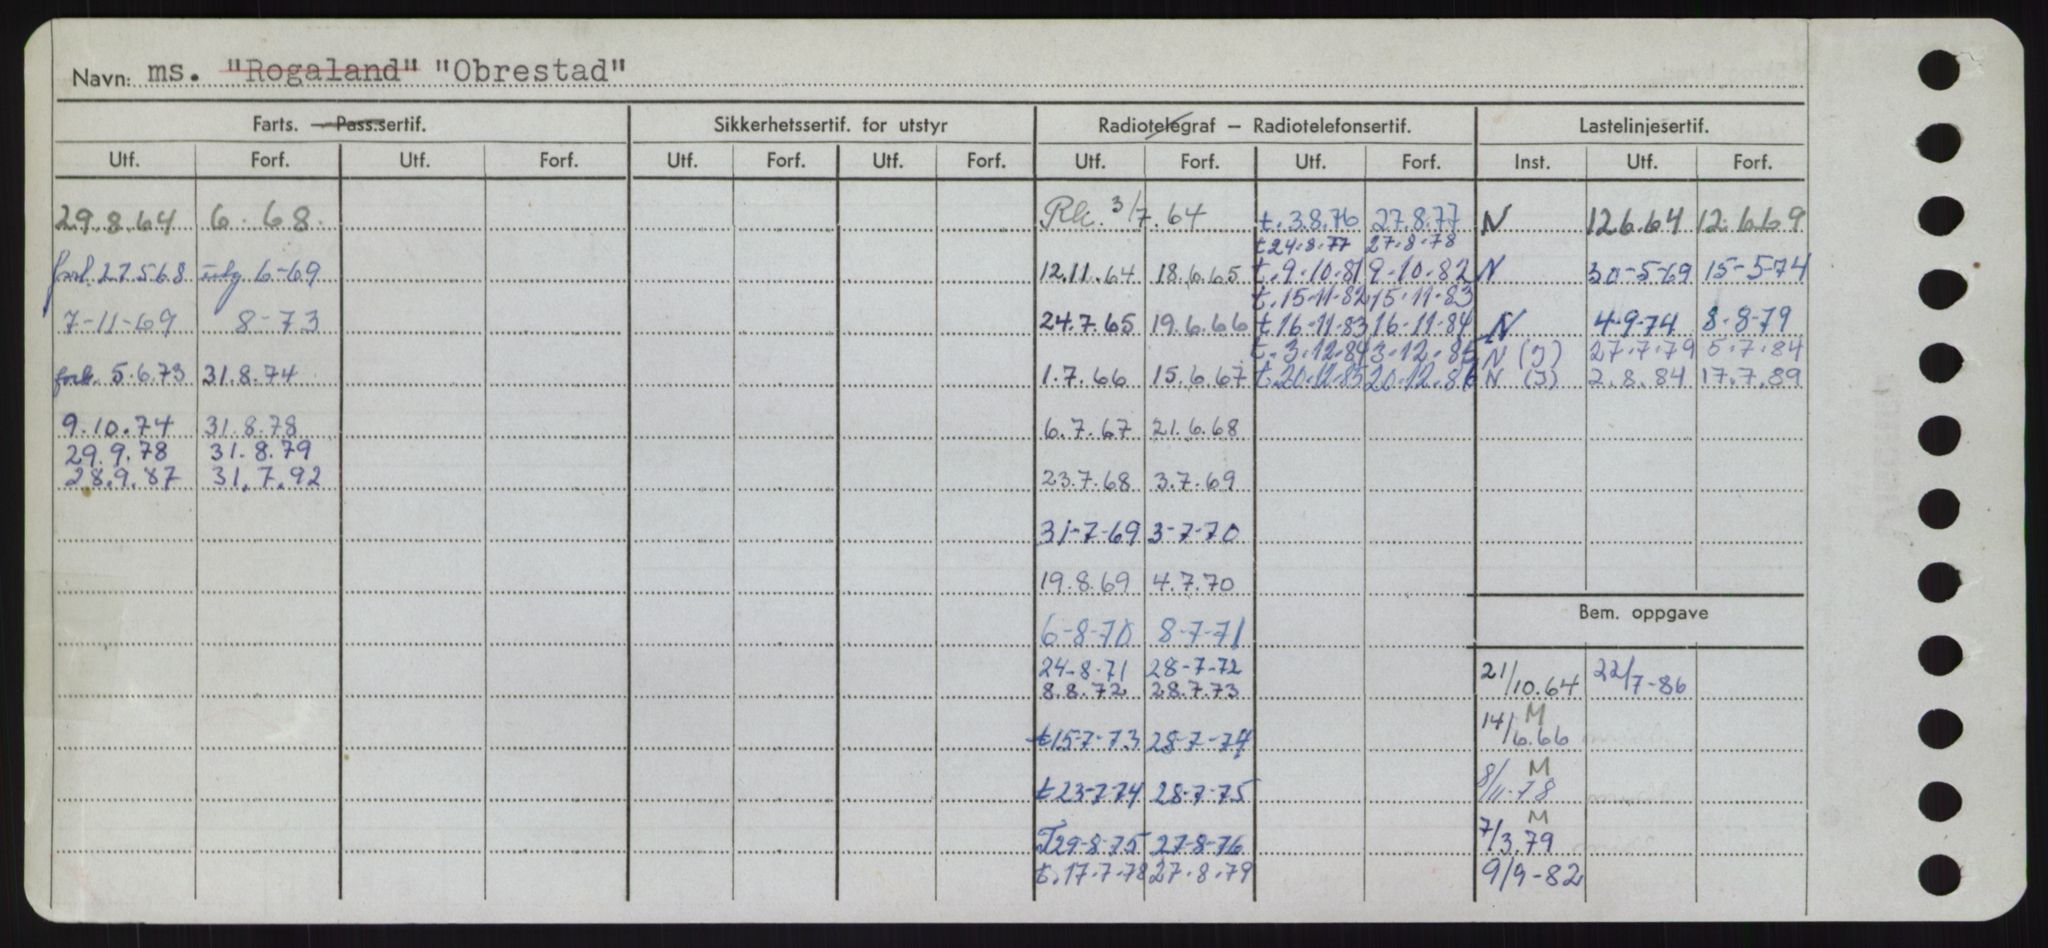 Navn: ms. "Rogaland" "Obrestad"
Farts. — Pass.sertif. Sikkerhetssertif. for utstyr Radiotelegraf – Radiotelefonsertif. Lastelinjesertif.
Utf. Forf. Utf. Forf. Utf. Forf. Utf. Forf. Utf. Forf. Utf. Forf. Inst. Utf. Forf.
29.8.64 6. 68. Rk. 3/7.64 t. 3.8.76 27.8.77 N 12.6.64 12.6.69
t 24.8.77 27.8.78
forl. 27.5.68 utg 6-69 12.11.64 18.6.65 t. 9.10.81 9.10.82 N 30-5-69 15-5-74
t. 15.11.82 15.11.83
7-11-69 8-73 24.7.65 19.6.66 t. 16.11.83 16.11.84 N 4-9-74 8-8-79
t. 3.12.84 3.12.85 N (I) 27.7.79 5.7.84
forl. 5.6.73 31.8.74 1.7.66 15.6.67 t. 20.12.85 20.12.86 N (I) 2.8.84 17.7.89
9.10.74 31.8.78 6.7.67 21.6.68
29.9.78 31.8.79
28.9.87 31.7.92 23.7.68 3.7.69
31-7-69 3-7-70
19.8.69 4.7.70
Bem. oppgave
6-8-70 8-7-71
24-8-71 28-7-72 21/10.64 22/7-86
8.8.72 28.7.73
t 15-7-73 28-7-74 14/6.66 M
t 23-7-74 28-7-75 8/11-78 M
T 29-8-75 27-8-76 7/3.79 M
t. 17.7.78 27.8.79 9/9-82